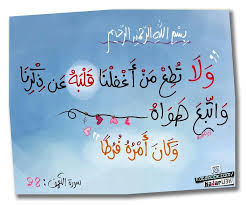 بسم الله الرحمن الرحيم
"وَلَا تُطِعْ مَنْ أَغْفَلْنَا قَلْبَهُ عَن ذِكْرِنَا
وَاتَّبَعَ هَوَاهُ
وَكَانَ أَمْرُهُ فُرُطًا"
سورة الكهف : 28